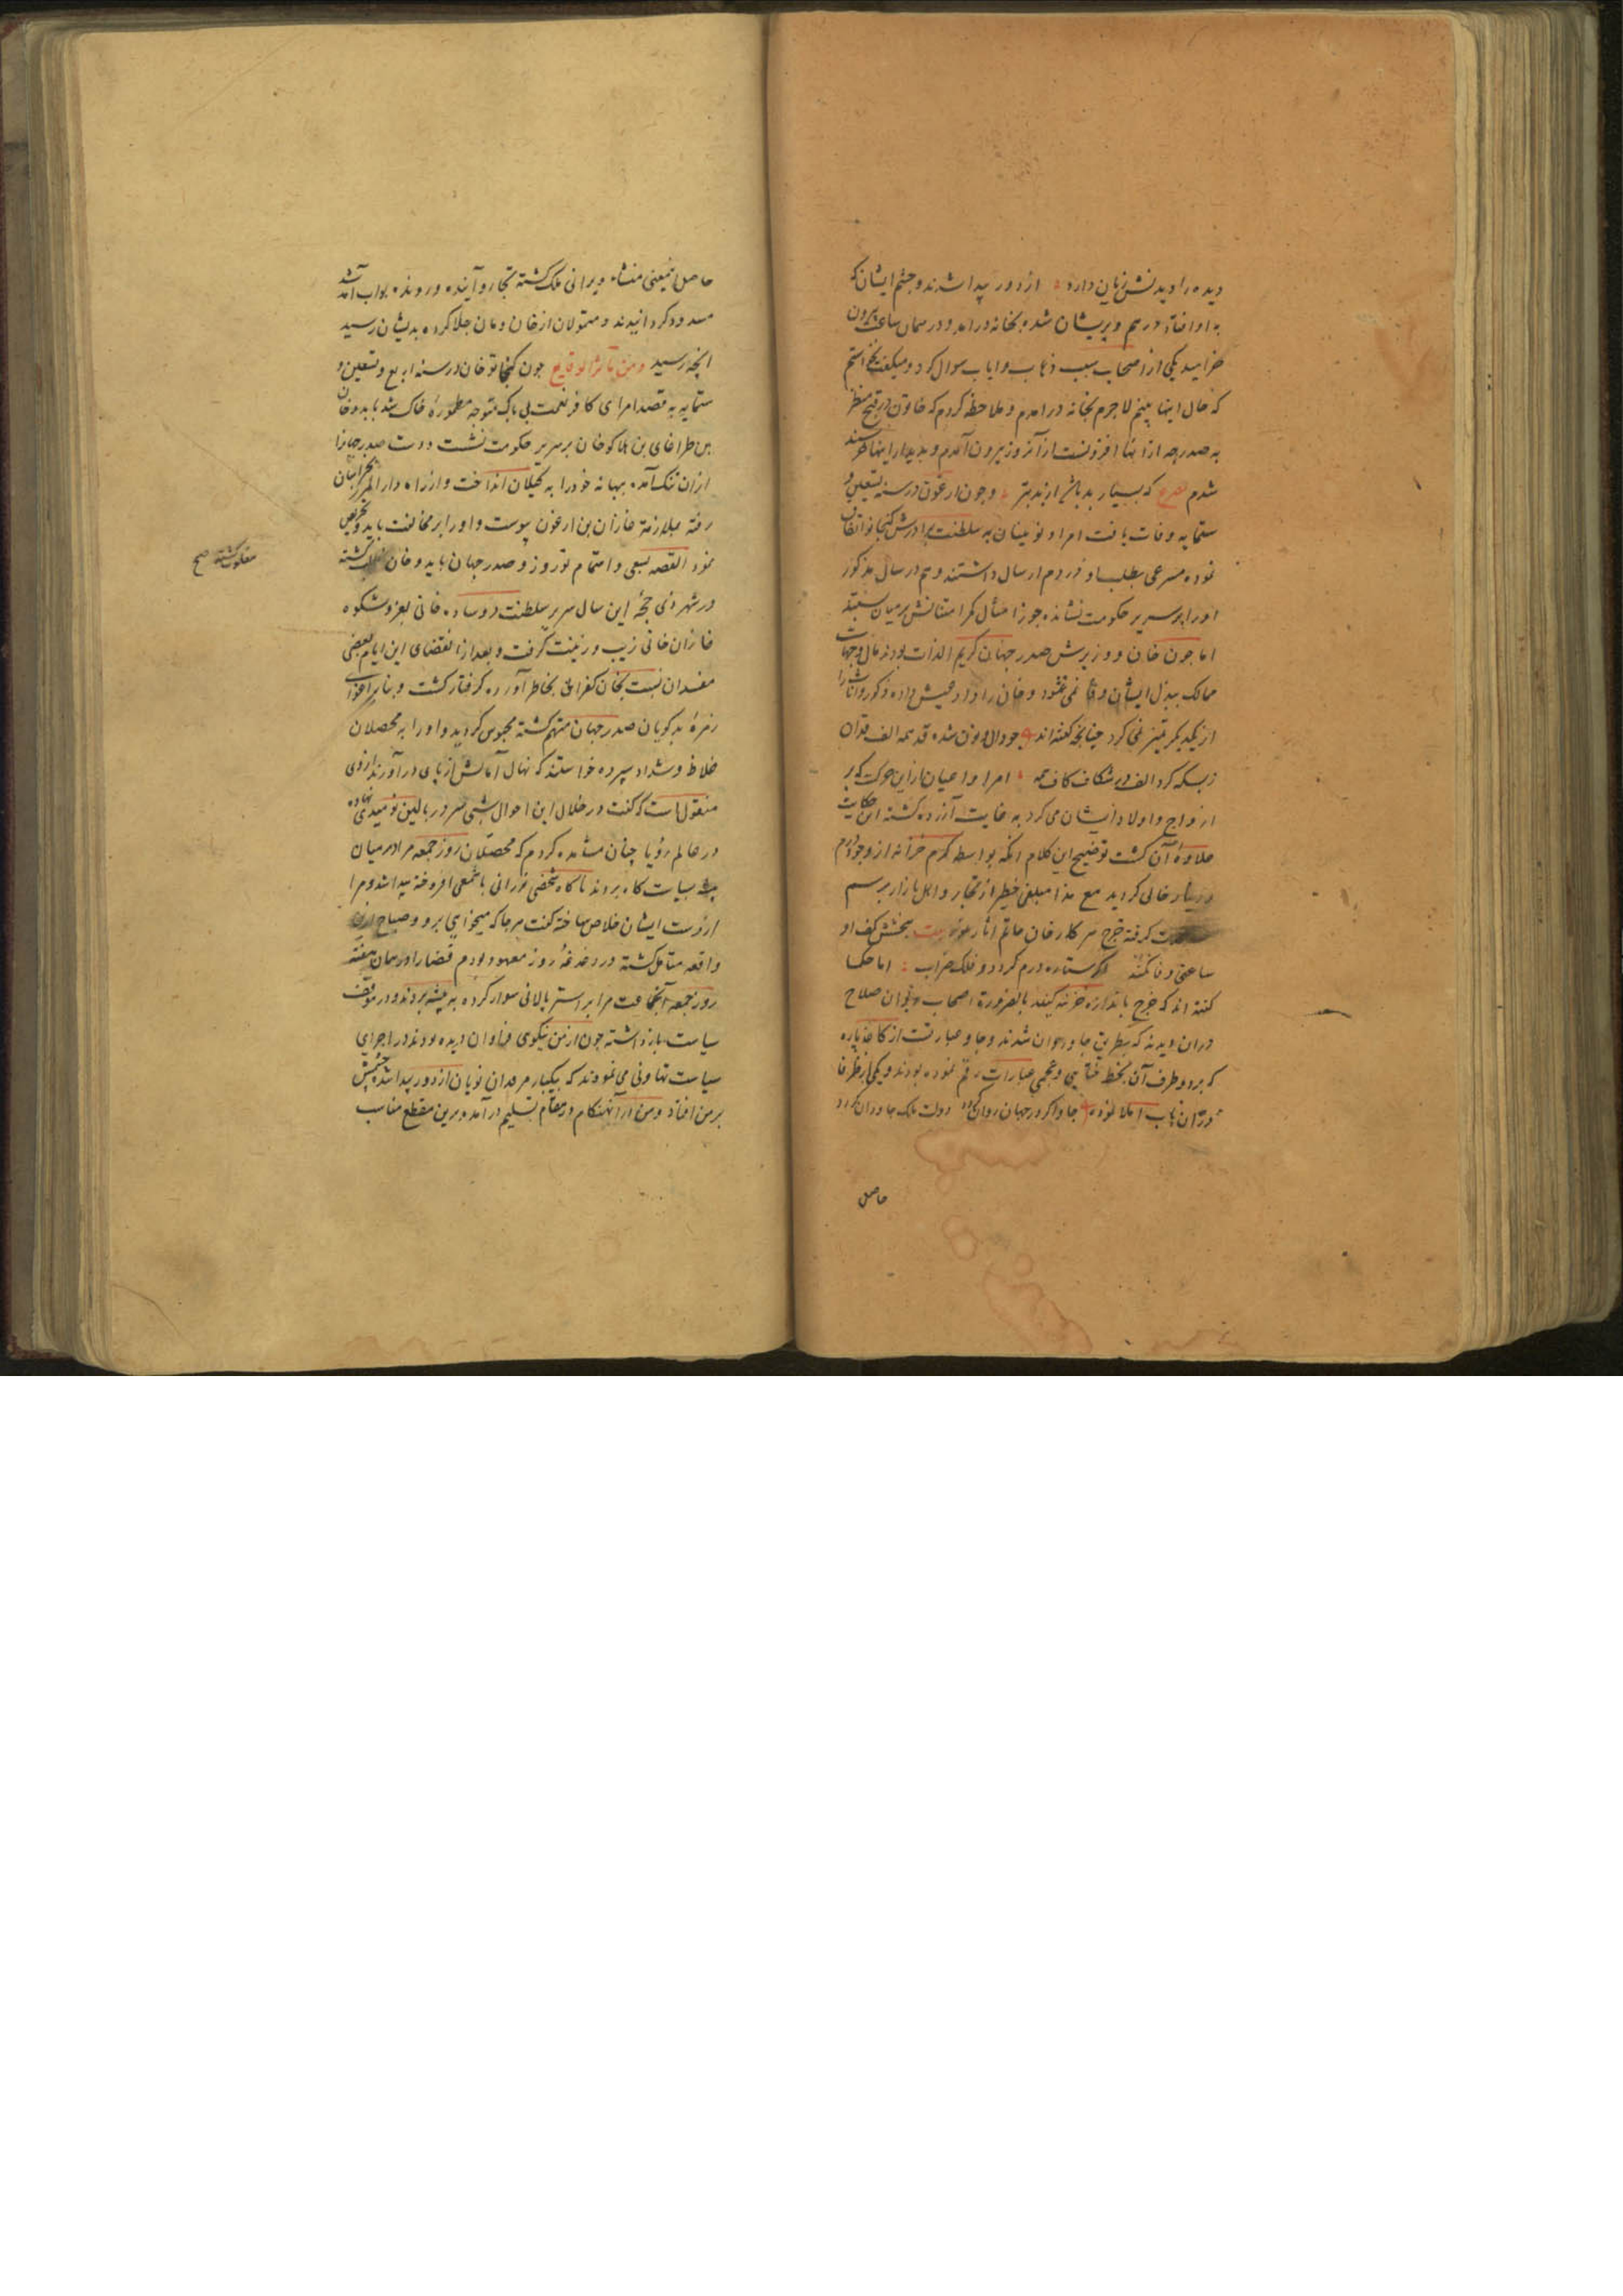 دیده را دیدنش زیان دارد از دور پیدا شدند و چشم ایشان که
به او افتاد درهم و پریشان شده بخانه درآمد و در همان ساعت بیرون
خرامید یکی از اصحاب سبب ذهاب و ایاب سوال کرد و میگفت
که حال اینها بینم لاجرم بخانه درآمدم و ملاحظه کردم که خاتون در قبح منظر
به صد درجه از اینها افزونست از آنرو بیرون آمدم و بدیدار اینها خرسند
شدم مصرع که بسیار بد باشد از بد بتر و چون ارغون در سنه تسعین و
ستمایه وفات یافت امرا و نویینان به سلطنت برادرش کنجاتو اتفاق
نموده مسرعی بطلب او در روم ارسال داشتند و هم در سال مذکور
او را بر سریر حکومت نشانده جوزا مثال کمر امتثالش بر میان بستند
اما چون خان و وزیرش صدر جهان کریم الذات بودند مال و جهات
ممالک ببذل ایشان وفا نمی نمود و خان را داد عیش داده ذکور و اناث را
از یکدیگر تمیز نمی کرد چنانچه گفته اند چو دال و نون شده قد همه الف قدان
زبسکه کرد الف در شکاف کاف همه امرا و اعیان را از این حرکت که بر
ازواج و اولاد ایشان می کرد به غایت آزرده گشته این حکایت
علاوه آن گشت توضیح این کلام آنکه بواسطه کرم خزانه از وجود درم
و دینار خالی گردید مع هذا مبلغی خطیر از تجار و اهل بازار برسم
گرفته خرج سرکار خان حاتم آثار نمود بیت ببخشش کف او
ساعتی وفا نکند اگر ستاره درم گردد و فلک ضراب اما حکما
گفته اند که خرج باندازه خزینه کنید بالضرورة اصحاب دیوان صلاح
دران دیدند که بطریق چاو روان شدند و چاو عبارتست از کاغذ پاره
که بر دو طرف آن بخط ختایی و عجمی عبارات رقم نموده بودند و یکی از ظرفا
دران باب املا نموده چاو اگر در جهان روان گردد دولت ملک جاودان گردد
حاصل
حاصل اینمعنی منشاء ویرانی ملک گشته تجار و آینده و رونده ابواب آمد شد
مسدود گردانیدند و متمولان از خان و مان جلا کرده بدیشان رسید
آنچه رسید و من تأثر الوقایع چون کنجاتو خان در سنه اربع و تسعین و
ستمایه به قصد امرای کافر نعمت بی باک متوجه مطموره خاک شد بایدو خان
بن طراغای بن هلاکو خان بر سریر حکومت نشست و دست صدر جهان را
ازان تنگ آمده بهانه خود را به گیلان انداخت و از راه دار المرز بخراسان
رفته بملازمة غازان بن ارغون پیوست و او را بر مخالفت بایدو تحریص
نمود القصه بسعی و اهتمام نوروز و صدر جهان بایدو خان گشته
مغلوب گشته صح
در شهر ذی حجۀ این سال سریر سلطنت و وساده خانی بعز و شکوه
غازان خانی زیب و زینت گرفت و بعد از انقضای این ایام بعضی
مفسدان نسبت بخان کفران بخاطر آورده گرفتار گشت و بنابر اغوای
زمرۀ بدگویان صدر جهان متهم گشته محبوس گردید و او را به محصلان
غلاظ و شداد سپرده خواستند که نهال آمالش از پای درآورند از وی
منقولست که گفت در خلال این احوال شبی سر در بالین نومیدی نهاده
در عالم رؤیا چنان مشاهده کردم که محصلان روز جمعه مرا در میان
پشه بسیاستگاه بردند ناگاه شخصی نورانی با شمعی افروخته پیدا شد و مرا
از دست ایشان خلاص ساخته گفت هر جا که میخواهی برو و صباح ازین
واقعه متأمل گشته در دغدغۀ روز معهود بودم قضا را در همان هفته
روز جمعه آنجماعت مرا بر استر پالانی سوار کرده به پیشه بردند و در موقف
سیاست بازداشته چون از من نیکوی فراوان دیده بودند در اجرای
سیاست تهاونی می نمودند که بیکبار مرقدان نویان از دور پیدا شد چشمش
بر من افتاد و من از آنهنگام در مقام تسلیم درآمده برین مقطع مناسب